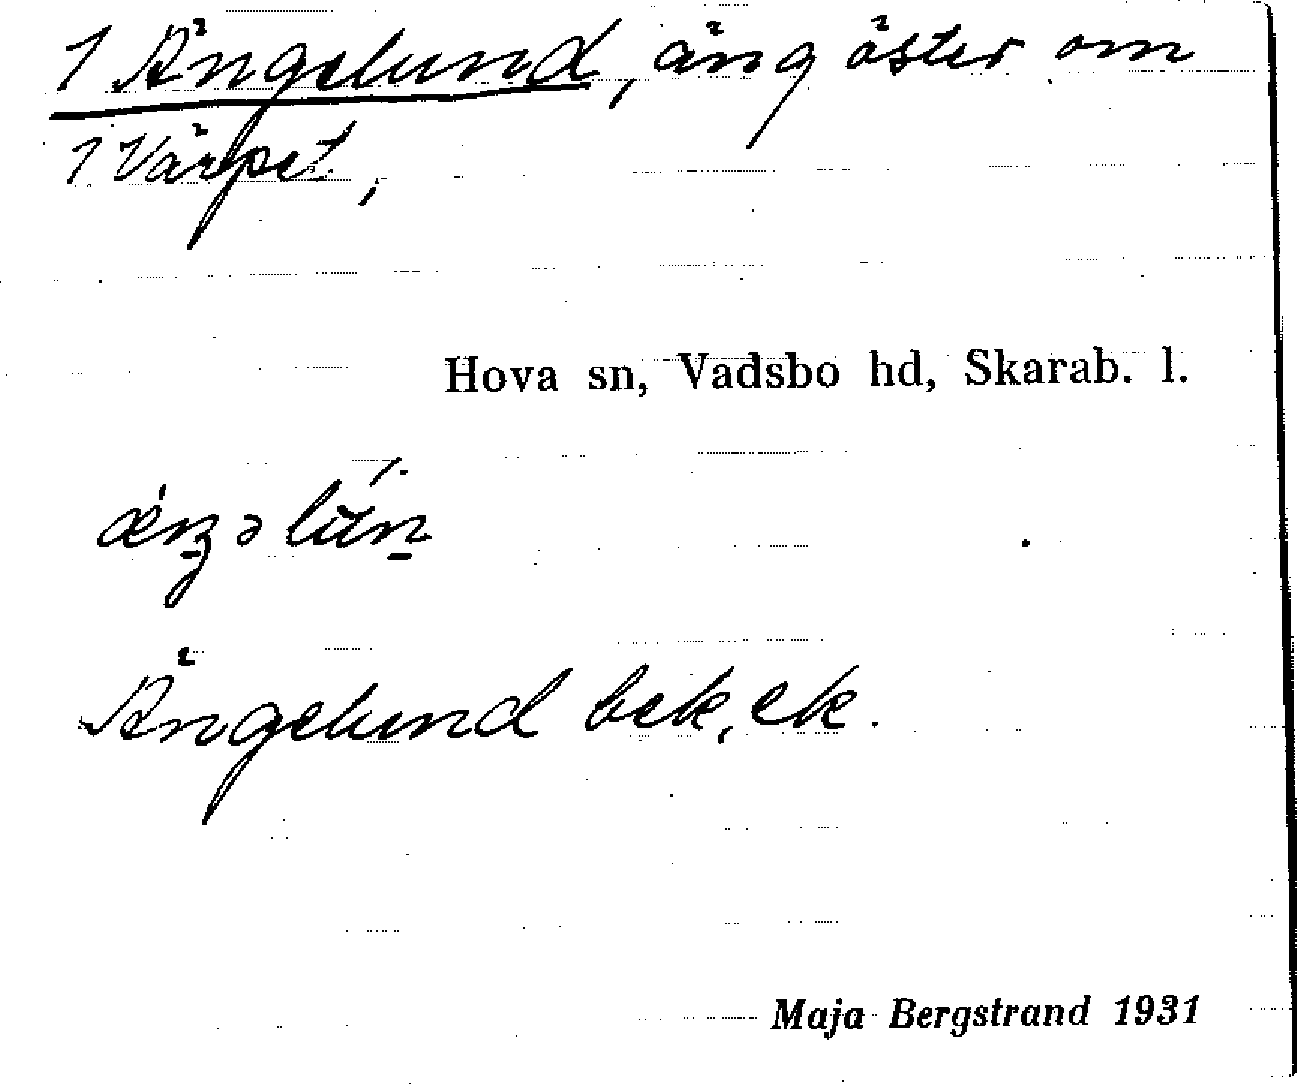 1 Ängelund, äng öster om
1 Värpet,
Hova sn, Vadsbo hd, Skarab. l.
Ängelund bek, ek.
Maja Bergstrand 1931